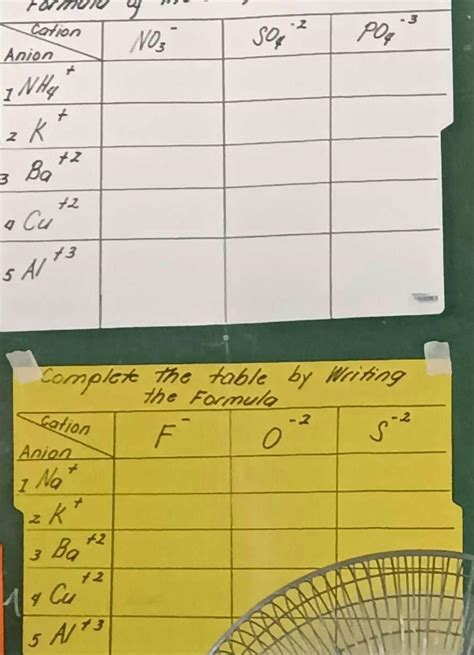 Formula of
Cation NO3- SO4-2 PO4-3
Anion
1 NH4+
2 K+
3 Ba+2
4 Cu+2
5 Al+3
Complete the table by Writing
the Formula
Cation F- O-2 S-2
Anion
1 Na+
2 K+
3 Ba+2
4 Cu+2
5 Al+3